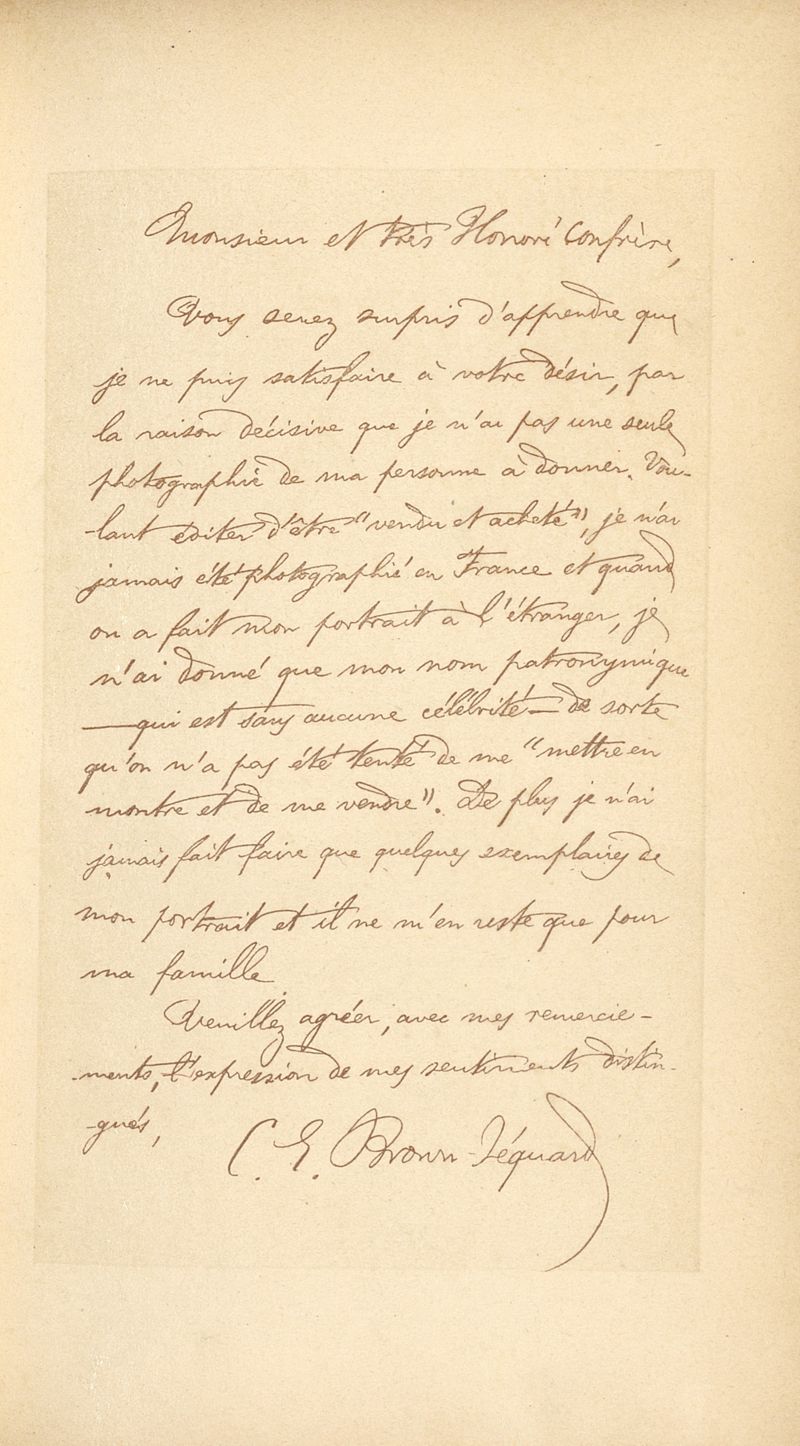 Monsieur et très Honoré Confrère,
Vous serez surpris d'apprendre que
je ne puis satisfaire à votre désir, par
la raison décisive que je n'ai pas une seule
photographie de ma personne à donner. Vou-
-lant éviter d'être "vendu et acheté", je n'ai
jamais été photographié en France et quand
on a fait mon portrait à l'étranger, je
n'ai donné que mon nom patronymique
— qui est sans aucune célébrité — de sorte
qu'on n'a pas été tenté de me "mettre en
montre et de me vendre". De plus je n'ai
jamais fait faire que quelques exemplaires de
mon portrait et il ne m'en reste que pour
ma famille
Veuillez agréer, avec mes remercie-
-ments, l'expression de mes sentiments distin-
-gués,
C. E. Brown-Séquard